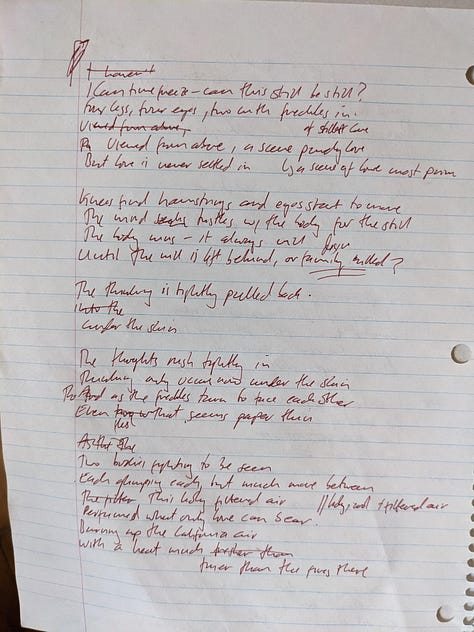 I haven't
Can time freeze - can this still be still?
four legs, four eyes, two with freckles in.
Viewed from above,
of still love
Viewed from above, a scene purely love
But love is never settled in
a scene of love most
Knees find hamstrings and eyes start to move
The mind tustles w/ the body for the still
The body wins - it always will
Until the will is left behind, or
The thinking is tightly pulled back.
into the
under the skin
The thoughts rush tightly in
Thinking only occurs now under the skin
And as the freckles turn to face each other
Even that, seems paper thin
As the
Two bodies fighting to be seen
Each glimpsing easily but much more between
The filter This holy filtered air // holy and filtered air
Perfumed what only love can bear.
Burning up the California air
With a heat much further than
than the fires there